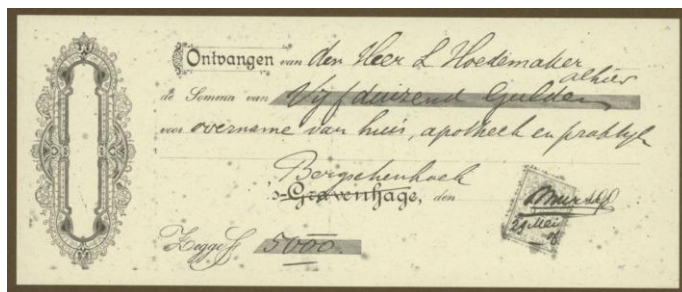 Ontvangen van den Heer L Hoedemaker
alhier
de Somma van Vijfduizend Gulden
voor overname van huis, apotheek en praktijk
Bergschenhoek
's-Gravenhage, den
29 Mei
Zegge f 5000.